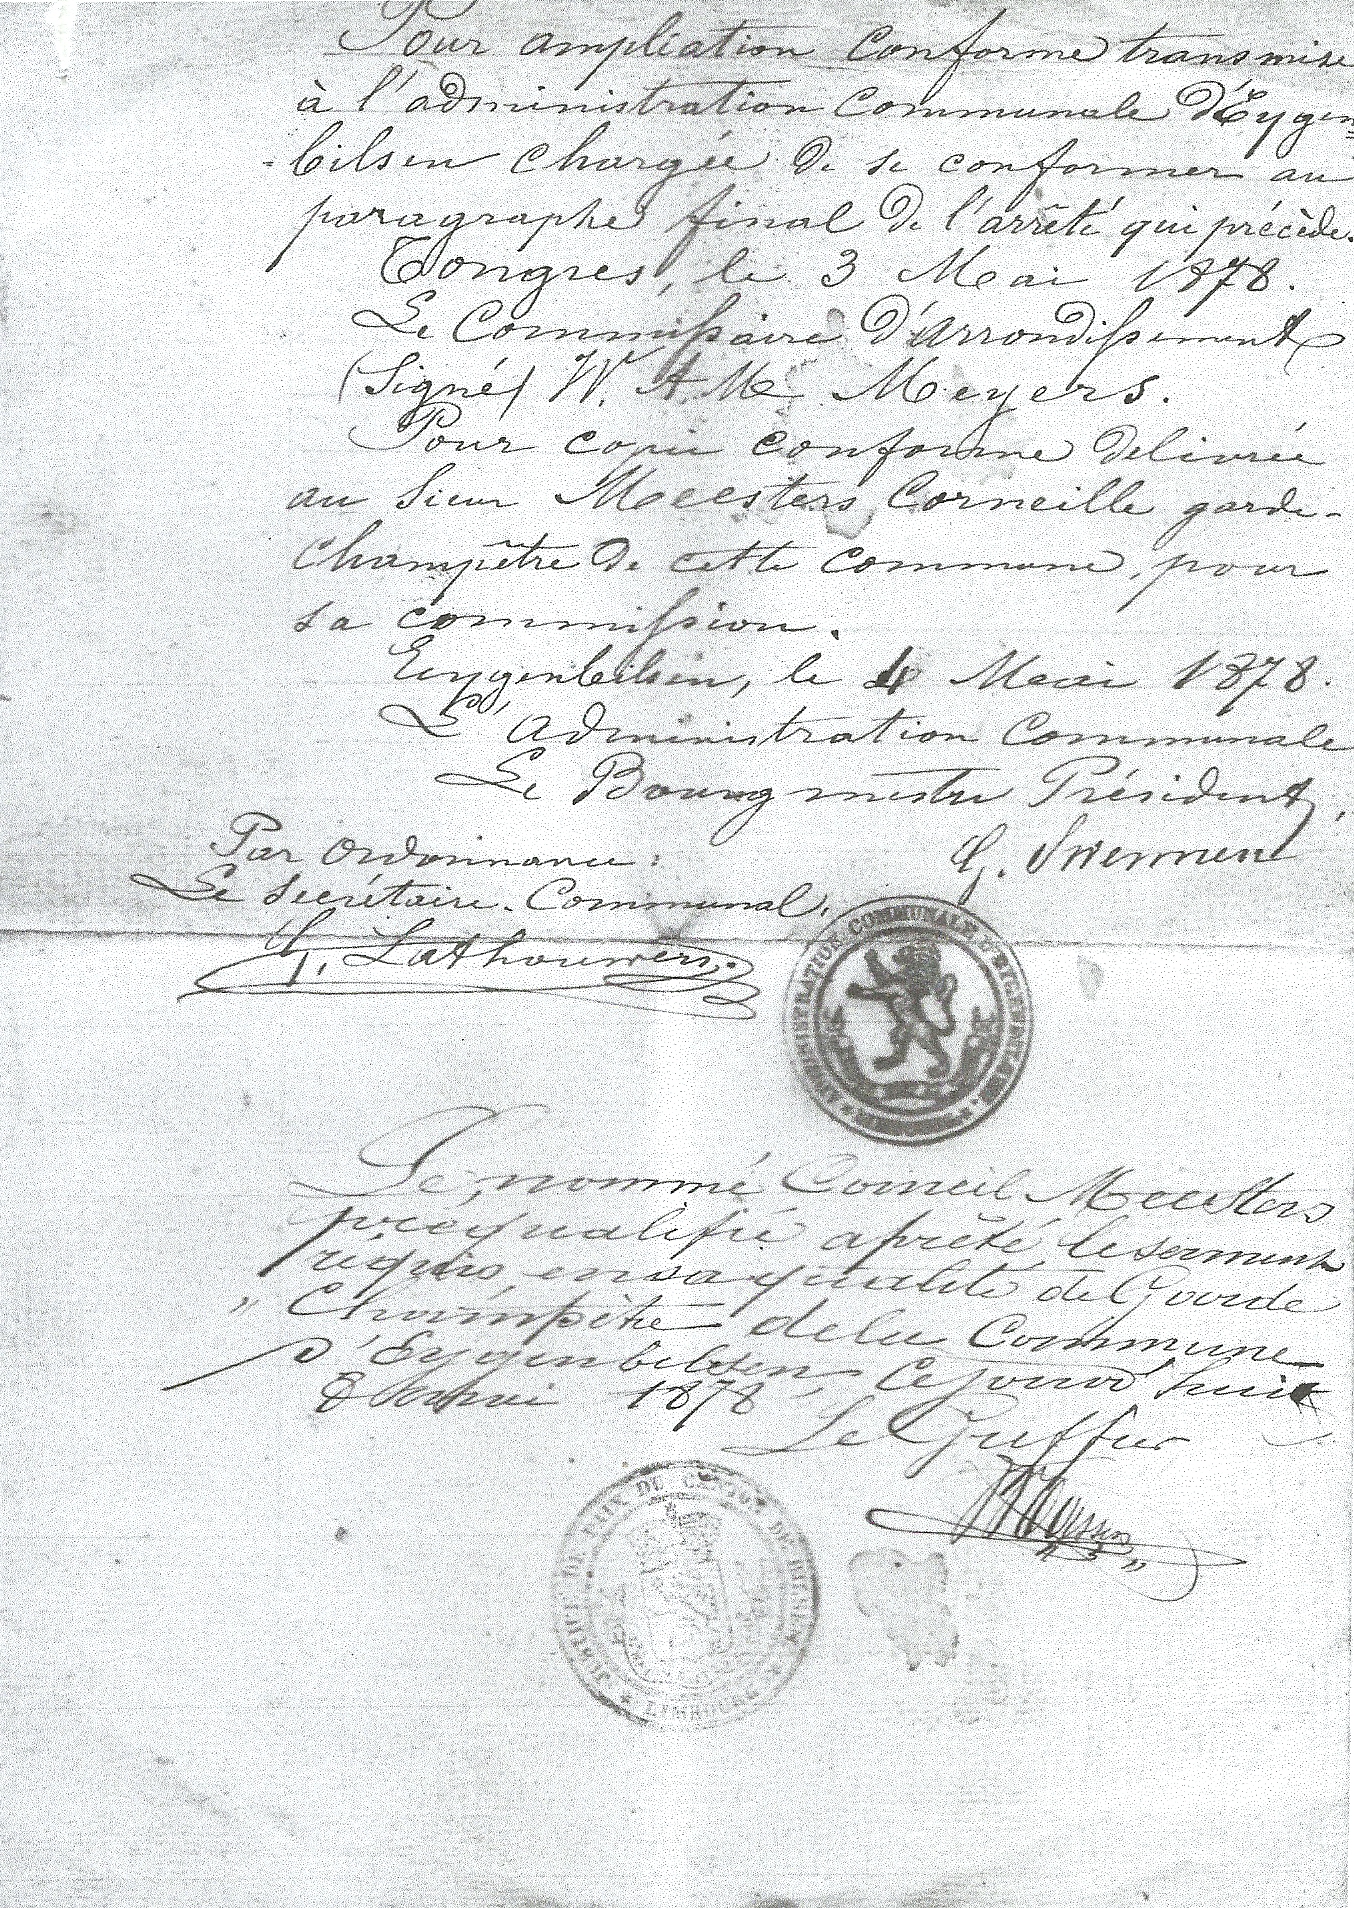 Pour ampliation conforme transmise
à l'administration communale d'Eygen=
-bilsen chargée de se conformer au
paragraphe final de l'arrêté qui précède.
Tongres, le 3 Mai 1878.
Le Commissaire d'arrondissement
(Signé) W. A. Me Meyers.
Pour copie conforme delivrée
au Sieur Meesters Corneille garde-
champêtre de cette commune, pour
sa commission.
Eeygenbilsen, le 4 Meai 1878.
L'administration Communale
Le Bourgmestre Président,
G. Swennen
Par Ordonnance:
Le Secrétaire-Communal,
G. Lathouwers.
ADMINISTRATION COMMUNALE D'EIGENBILSEN
Le nommé Corneil Meesters
préqualifié a prêté le serment
réquis en sa qualité de Gaarde
" Champêtre de la Commune
d'Eygenbilsen, Cejourd'huit
8 mai 1878
Le Greffier
JUSTICE DE PAIX DU CANTON DE BILSEN
LIMBOURG